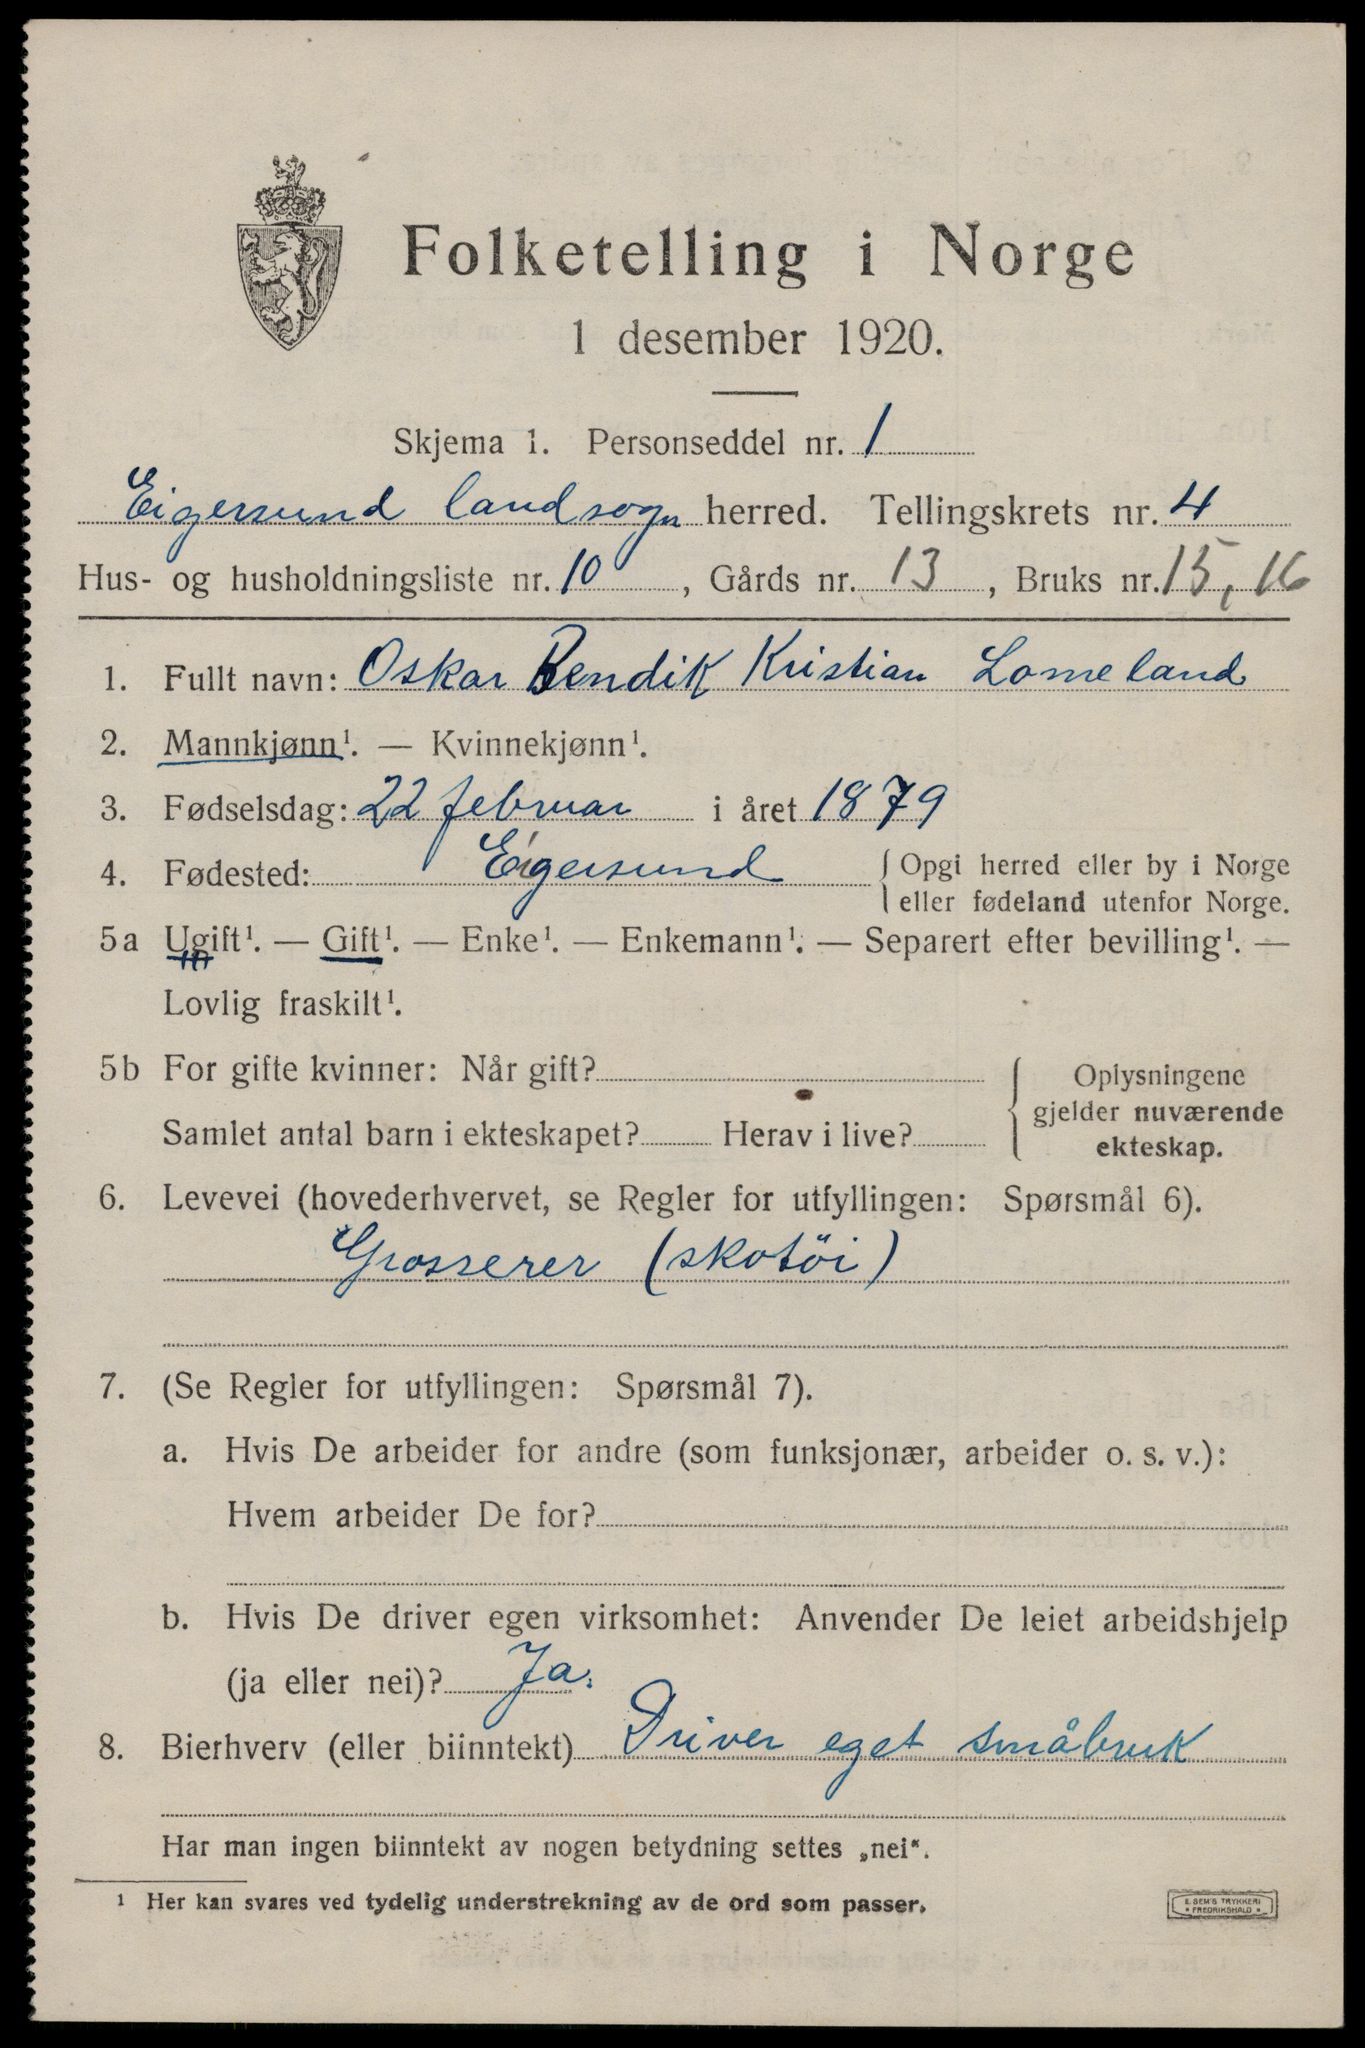 Folketelling i Norge
1 desember 1920.
Skjema 1. Personseddel nr. 1
Eigersund landsogn herred. Tellingskrets nr. 4
Hus- og husholdningsliste nr. 10, Gårds nr. 13, Bruks nr. 15, 16
1. Fullt navn: Oskar Bendik Kristian Lomeland
2. Mannkjønn¹. — Kvinnekjønn¹.
3. Fødselsdag: 22 februar i året 1879
4. Fødested: Eigersund { Opgi herred eller by i Norge
eller fødeland utenfor Norge.
5a Ugift¹. — Gift¹. — Enke¹. — Enkemann¹. — Separert efter bevilling¹. —
Lovlig fraskilt¹.
5b For gifte kvinner: Når gift?
Samlet antal barn i ekteskapet? Herav i live?
{ Oplysningene
gjelder nuværende
ekteskap.
6. Levevei (hovederhvervet, se Regler for utfyllingen: Spørsmål 6).
Grosserer (skotöi)
7. (Se Regler for utfyllingen: Spørsmål 7).
a. Hvis De arbeider for andre (som funksjonær, arbeider o. s. v.):
Hvem arbeider De for?
b. Hvis De driver egen virksomhet: Anvender De leiet arbeidshjelp
(ja eller nei)? Ja.
8. Bierhverv (eller biinntekt) Driver eget småbruk
Har man ingen biinntekt av nogen betydning settes „nei“.
¹ Her kan svares ved tydelig understrekning av de ord som passer.
E. SEM'S TRYKKERI
* FREDRIKSHALD *